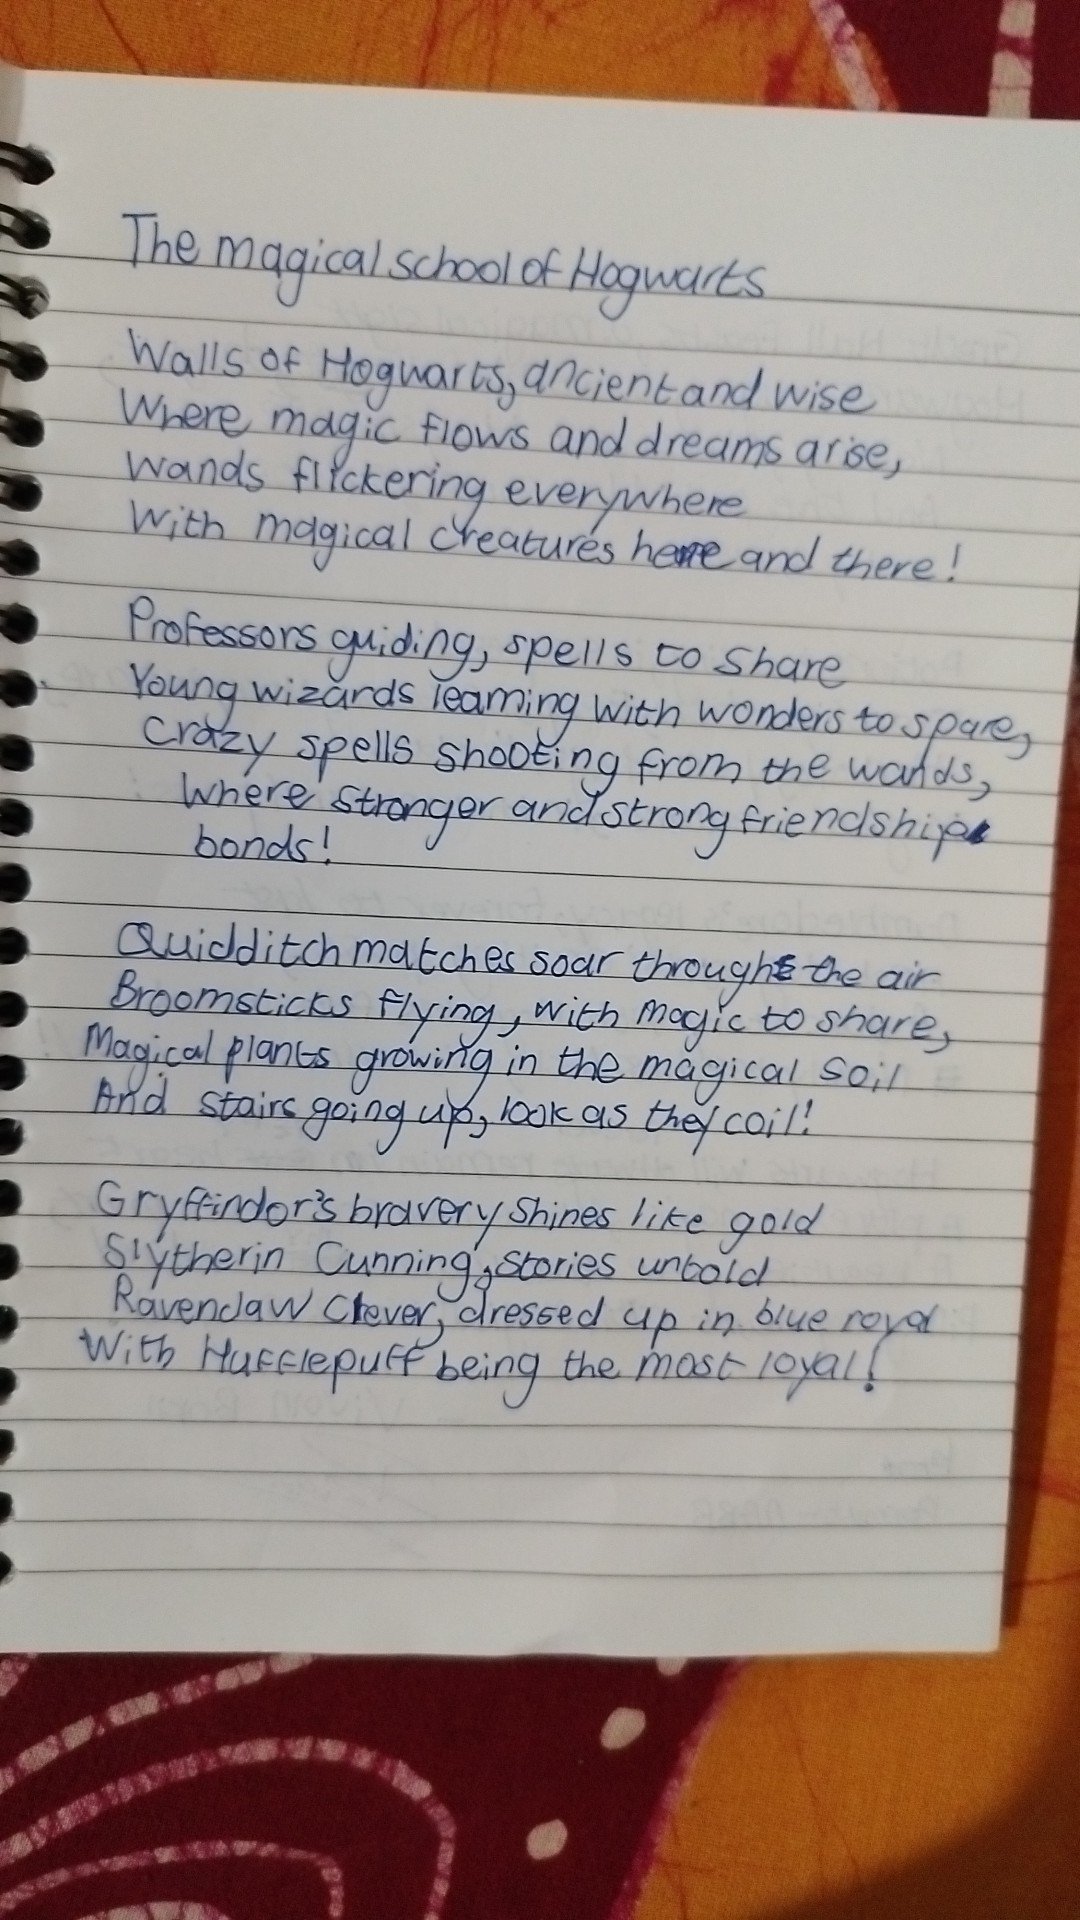 The magical school of Hogwarts
Walls of Hogwarts, ancient and wise
Where magic flows and dreams arise,
Wands flickering everywhere
With magical creatures here and there!
Professors guiding, spells to share
Young wizards learning with wonders to spare,
Crazy spells shooting from the wands,
Where stronger and strong friendship
bonds!
Quidditch matches soar through the air
Broomsticks flying, with magic to share,
Magical plants growing in the magical soil
And stairs going up, look as they coil!
Gryffindor's bravery shines like gold
Slytherin Cunning, stories untold
Ravenclaw Clever, dressed up in blue royal
With Hufflepuff being the most loyal!